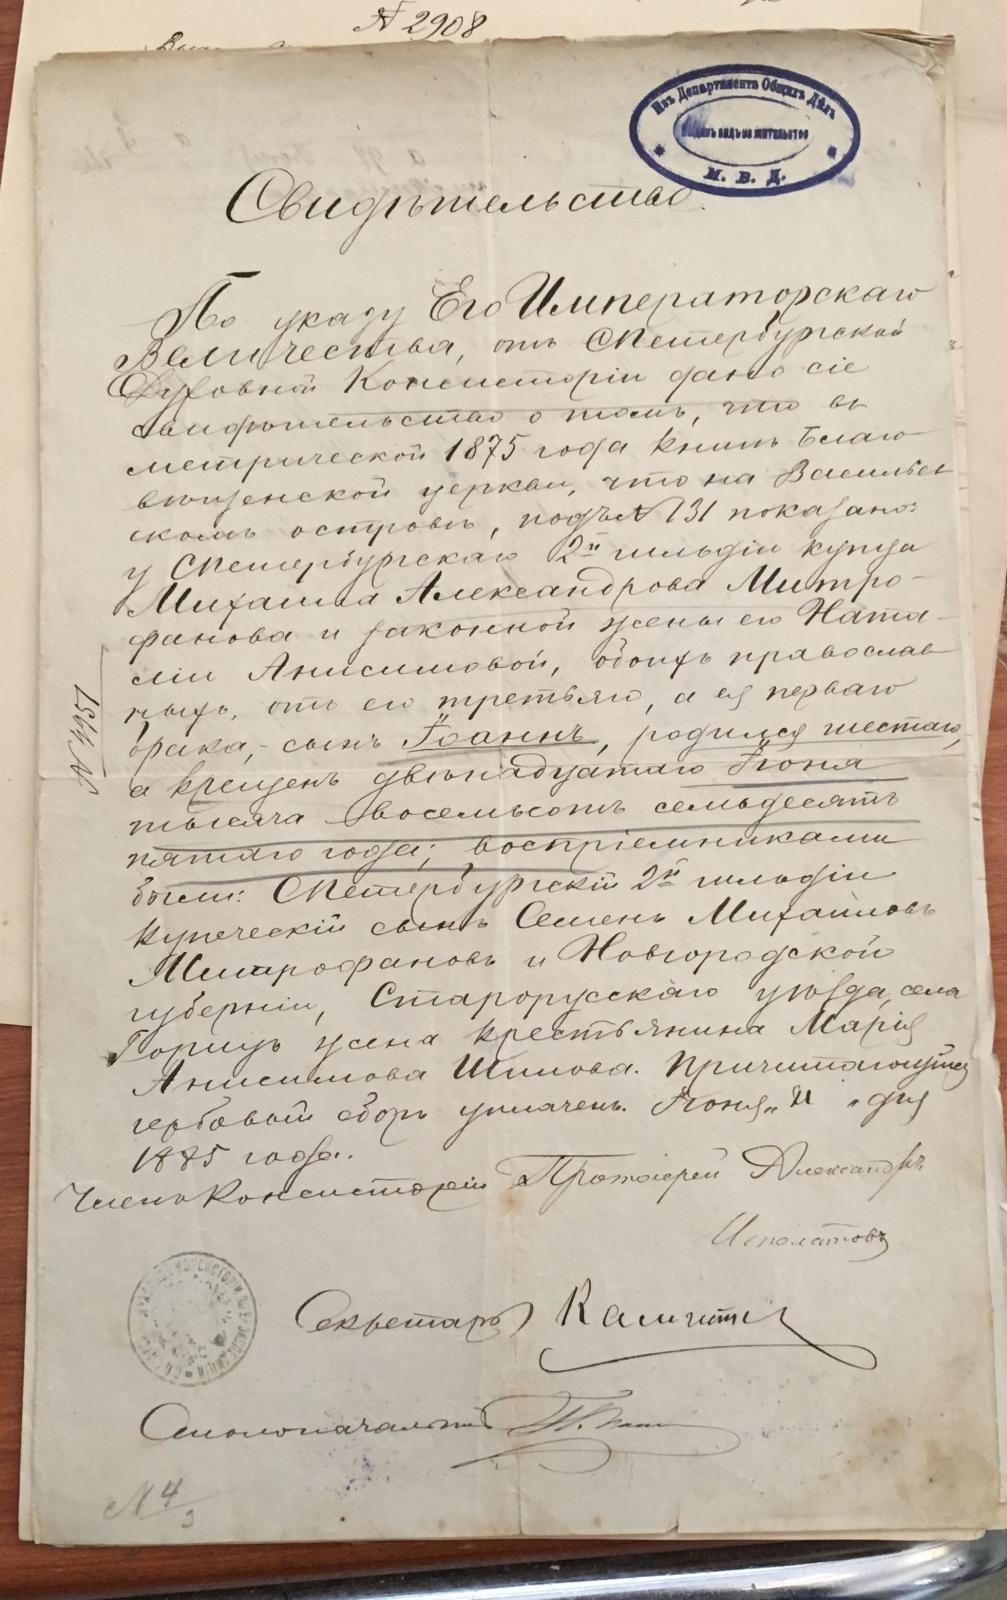 № 2908
Изъ Департамента Общихъ Дѣлъ
видъ на жительство
М. В. Д.
Свидѣтельство.
По указу Его Императорскаго
Величества, отъ СПетербургской
Духовной Консисторіи дано сіе
свидѣтельство о томъ, что въ
метрической 1875 года книгѣ Благо
вѣщенской церкви, что на Васильев
скомъ островѣ, подъ № 131 показано:
у СПетербургскаго 2й гильдіи купца
Михаила Александрова Митро-
фанова и законной жены его Ната-
ліи Анисимовой, обоихъ православ
ныхъ, отъ его третьяго, а ея перваго
брака,- сынъ Іоаннъ, родился шестаго,
а крещенъ двѣнадцатаго Іюня
тысяча восемьсотъ семьдесятъ
пятаго года; воспріемниками
были: СПетербургскій 2й гильдіи
купеческій сынъ Семенъ Михайловъ
Митрофановъ и Новгородской
губерніи, Старорусскаго уѣзда, села
Горицъ жена крестьянина Марія
Анисимова Шилова. Причитающійся
гербовый сборъ уплаченъ. Іюня „ 11 „ дня
1885 года.
№ 4951
Членъ Консисторіи Протоіерей Александръ
Исполатовъ
Секретарь
Столоначальникъ
№ 4
3